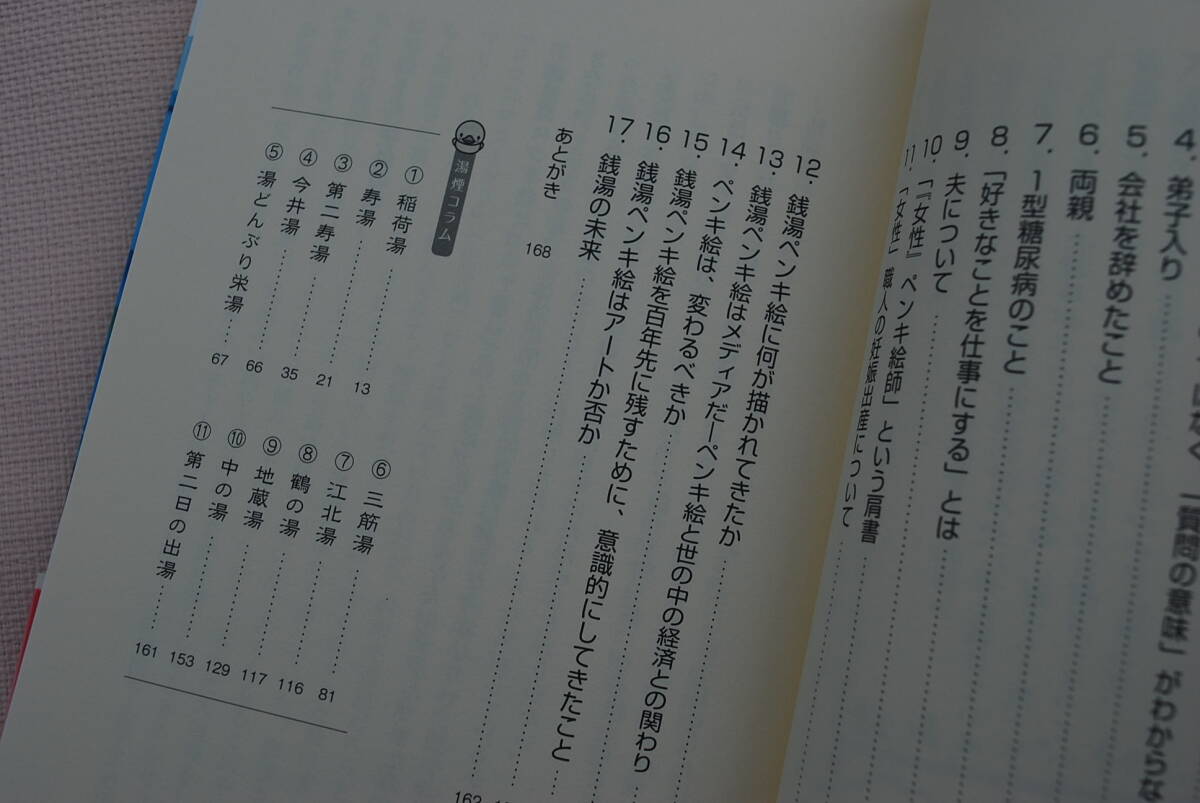 はなく、「質問の意味」がわからな
4. 弟子入り
5. 会社を辞めたこと
6. 両親
7. 1型糖尿病のこと
8. 「好きなことを仕事にする」とは
9. 夫について
10. 「『女性』ペンキ絵師」という肩書
11. 「女性」職人の妊娠出産について
12. 銭湯ペンキ絵に何が描かれてきたか
13. 銭湯ペンキ絵はメディアだーペンキ絵と世の中の経済との関わり
14. ペンキ絵は、変わるべきか
15. 銭湯ペンキ絵を百年先に残すために、意識的にしてきたこと
16. 銭湯ペンキ絵はアートか否か
17. 銭湯の未来
あとがき 168
湯煙コラム
① 稲荷湯 13
② 寿湯 21
③ 第二寿湯 35
④ 今井湯 66
⑤ 湯どんぶり栄湯 67
⑥ 三筋湯 81
⑦ 江北湯 116
⑧ 鶴の湯 117
⑨ 地蔵湯 129
⑩ 中の湯 153
⑪ 第二日の出湯 161